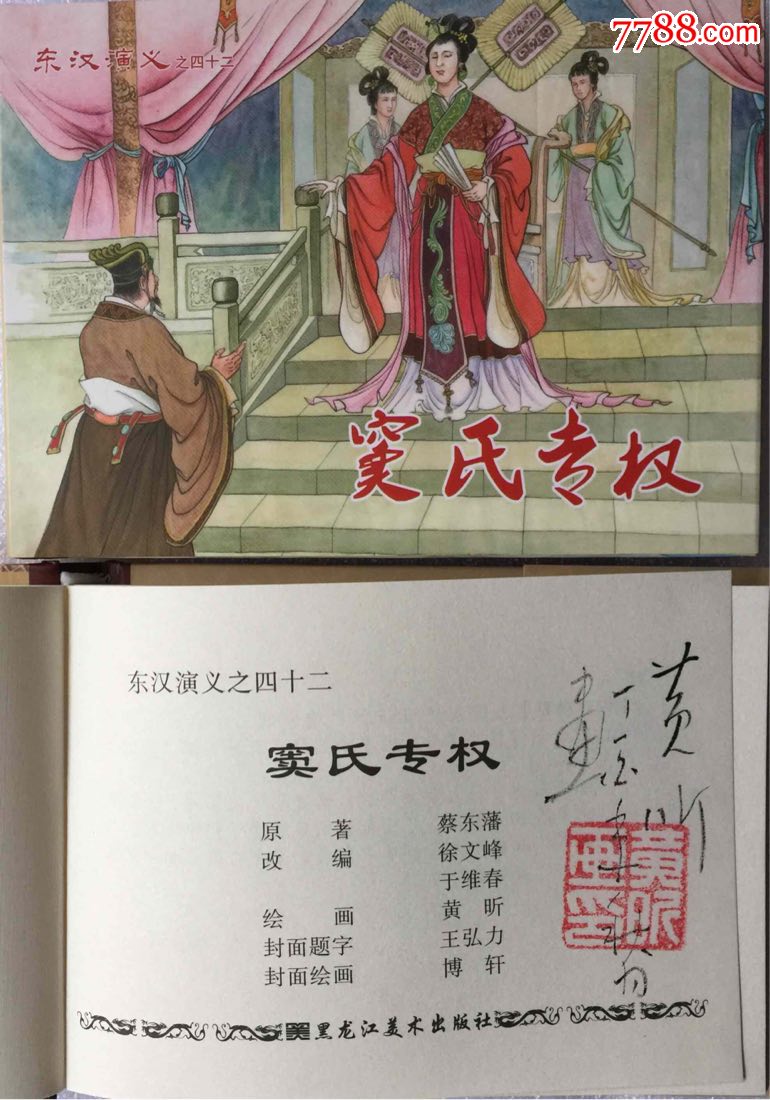 7788.com
东汉演义之四十二
窦氏专权
东汉演义之四十二
窦氏专权
原著 蔡东藩
改编 徐文峰
于维春
绘画 黄昕
封面题字 王弘力
封面绘画 博轩
黑龙江美术出版社
黄昕
画
黄昕
画印